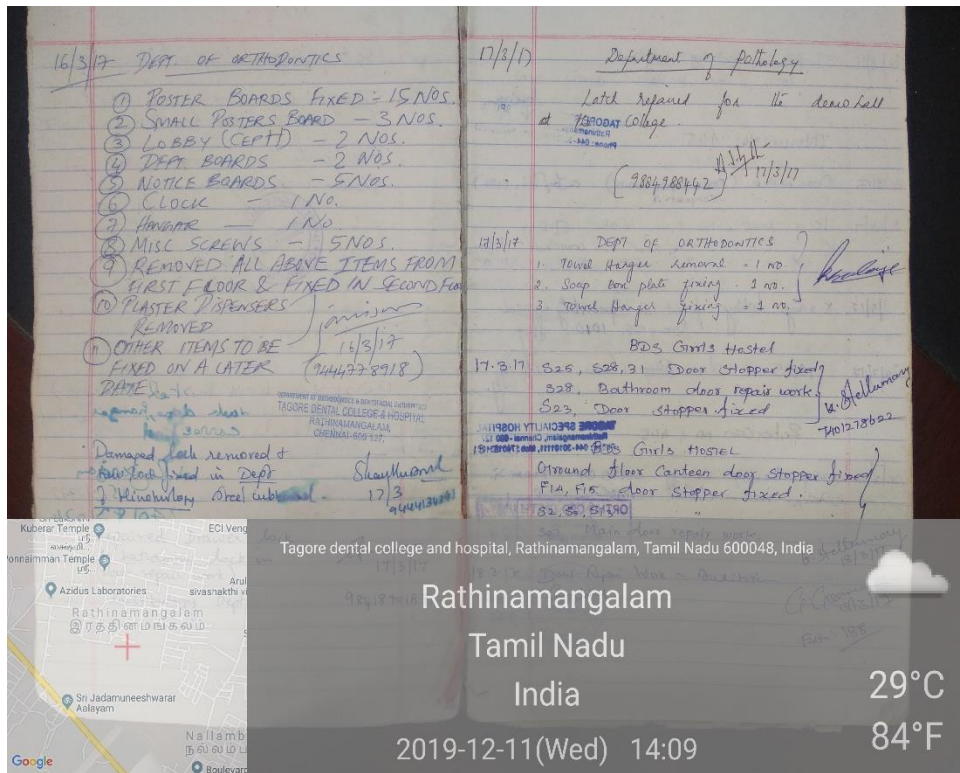 16/3/17 DEPT. OF ORTHODONTICS
① POSTER BOARDS FIXED = 15 NOS.
② SMALL POSTERS BOARD - 3 NOS.
③ LOBBY (CEPH) - 2 NOS.
④ DEPT. BOARDS - 2 NOS.
⑤ NOTICE BOARDS - 5 NOS.
⑥ CLOCK - 1 NO.
⑦ HANGAR - 1 NO
⑧ MISC SCREWS - 5 NOS.
⑨ REMOVED ALL ABOVE ITEMS FROM
FIRST FLOOR & FIXED IN SECOND
⑩ PLASTER DISPENSERS
REMOVED
16/3/17
⑪ OTHER ITEMS TO BE
(9444778918)
FIXED ON A LATER
DATE
TAGORE DENTAL COLLEGE & HOSPITAL
RATHINAMANGALAM,
CHENNAI-600 127.
Damaged lock removed &
lock fixed in Dept
17/3
17/3/17 Department of Pathology
Latch repaired for the demo hall
at College.
(9884988442) 17/3/17
17/3/17 DEPT OF ORTHODONTICS
1. Towel Hanger removal - 1 no.
2. Soap box plate fixing - 1 no.
3. Towel Hanger fixing - 1 no.
BDS Girls Hostel
17.3.17 S25, S28, 31 Door stopper fixed
S28. Bathroom door repair work.
S23, Door stopper fixed
7401278622
TAGORE SPECIALITY HOSPITAL
BDS Girls HOSTEL
Ground floor Canteen door stopper fixed
F14, F15 door stopper fixed.
Main door repair work
17/3/17
Kuberar Temple
ECI Veng
Ponnaimman Temple
Azidus Laboratories
Arul
sivashakthi vi
Rathinamangalam
இரத்தினமங்கலம்
Sri Jadamuneeshwarar
Aalayam
Nallamb
நல்லம்ப
Boulevard
Google
Tagore dental college and hospital, Rathinamangalam, Tamil Nadu 600048, India
Rathinamangalam
Tamil Nadu
India
2019-12-11(Wed) 14:09
29°C
84°F